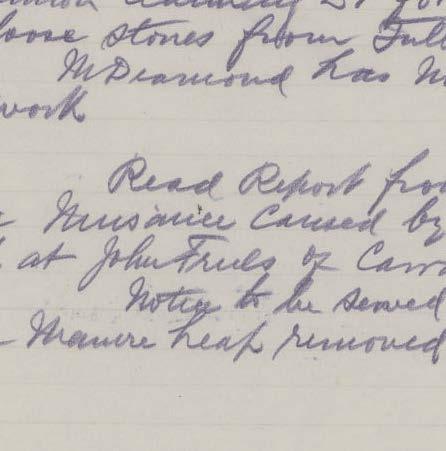 loose stones from
McDiamond has
work
Read Report from
Nuisance caused by
at John Friels of
Notice to be served
Manure heap removed